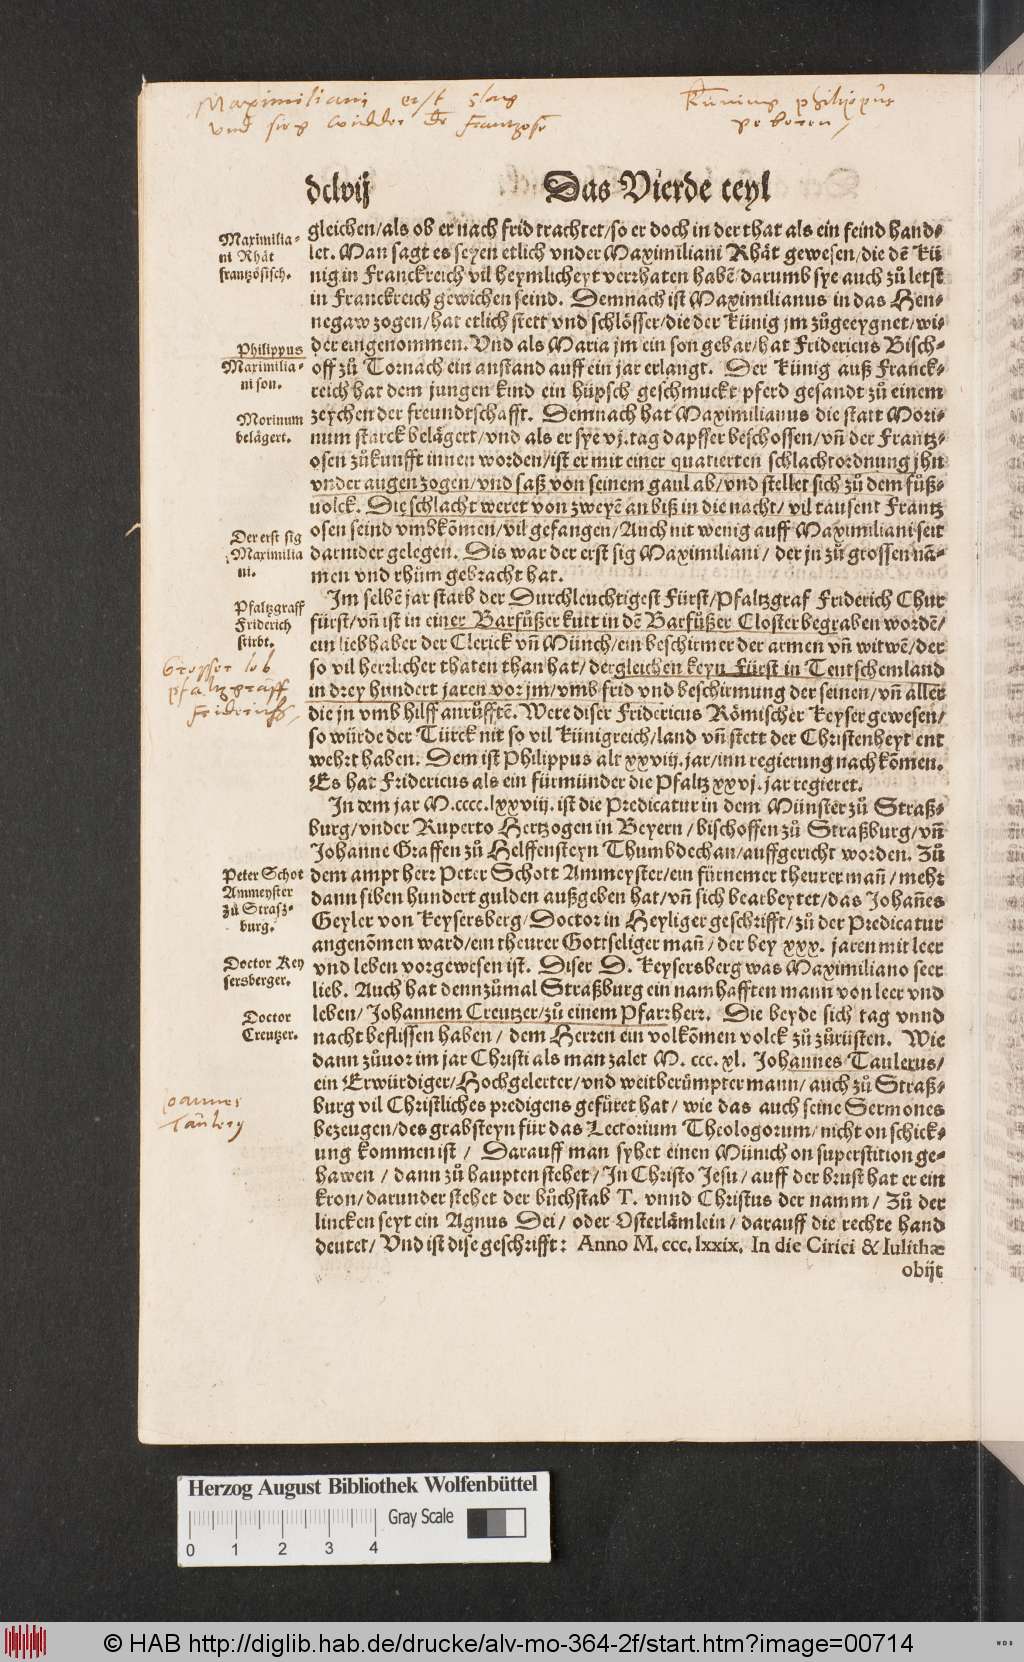 Maximiliani erst slag
vnd sieg widder de Frantzosē
Kūnins philippus
geboren /
dclvij
Das Vierde teyl
gleichen/als ob er nach frid trachtet/so er doch in der that als ein feind hand⸗
let. Man sagt es seyen etlich vnder Maximiliani Rhät gewesen/die dē kü
nig in Franckreich vil heymlicheyt verrhaten habē darumb sye auch zů letst
in Franckreich gewichen seind. Demnach ist Maximilianus in das Hen⸗
negaw zogen/hat etlich stett vnd schlösser/die der künig jm zůgeeygnet/wi⸗
der eingenommen. Vnd als Maria jm ein son gebar/hat Fridericus Bisch⸗
off zů Tornach ein anstand auff ein jar erlangt. Der künig auß Franck⸗
reich hat dem jungen kind ein hüpsch geschmuckt pferd gesandt zů einem
zeychen der freundtschafft. Demnach hat Maximilianus die statt Mori⸗
num starck belägert/vnd als er sye vj. tag dapffer beschossen/vñ der Frantz⸗
osen zůkunfft innen worden/ist er mit einer quatierten schlachtordnung jhn
vnder augen zogen/vnd saß von seinem gaul ab/vnd stellet sich zů dem fůß⸗
uolck. Die schlacht weret von zweyē an biß in die nacht/vil tausent Frantz
osen seind vmbkōmen/vil gefangen/Auch nit wenig auff Maximiliani seit
darnider gelegen. Dis war der erst sig Maximiliani/ der jn zů grossen nā⸗
men vnd rhům gebracht hat.
Im selbē jar starb der Durchleuchtigest Fürst/Pfaltzgraf Friderich Chur
fürst/vñ ist in einer Barfůßer kutt in dē Barfůßer Closter begraben wordē/
ein liebhaber der Clerick vñ Münch/ein beschirmer der armen vñ witwē/der
so vil herrlicher thaten than hat/ dergleichen keyn Fürst in Teutschemland
in drey hundert jaren vor jm/vmb frid vnd beschirmung der seinen/vñ aller
die jn vmb hilff anrüfftē. Were diser Fridericus Römischer Keyser gewesen/
so würde der Türck nit so vil Künigreich/land vñ stett der Christenheyt ent
wehrt haben. Dem ist Philippus alt xxviij. jar/inn regierung nachkōmen.
Es hat Fridericus als ein fürmünder die Pfaltz xxvj. jar regieret.
In dem jar M.cccc.lxxviij. ist die Predicatur in dem Münster zů Straß⸗
burg/vnder Ruperto Hertzogen in Beyern/bischoffen zů Straßburg/vñ
Johanne Graffen zů Helffensteyn Thumbdechan/auffgericht worden. Zů
dem ampt herr Peter Schott Ammeyster/ein fürnemer theurer mañ/mehr
dann siben hundert gulden außgeben hat/vñ sich bearbeytet/das Johañes
Geyler von Keysersberg/Doctor in Heyliger geschrifft/zů der Predicatur
angenōmen ward/ein theurer Gottseliger mañ/der bey xxx. jaren mit leer
vnd leben vorgewesen ist. Diser D. Keysersberg was Maximiliano seer
lieb. Auch hat dennzůmal Straßburg ein namhafften mann von leer vnd
leben/Johannem Creutzer/zů einem Pfarrherr. Die beyde sich tag vnnd
nacht beflissen haben/ dem Herren ein volkōmen volck zů zůrüsten. Wie
dann zůuor im jar Christi als man zalet M. ccc. xl. Johannes Taulerus/
ein Erwürdiger/Hochgelerter/vnd weitberümpter mann/auch zů Straß⸗
burg vil Christliches predigens gefüret hat/ wie das auch seine Sermones
bezeugen/des grabsteyn für das Lectorium Theologorum/nicht on schick⸗
ung kommen ist/ Darauff man syhet einen Münich on superstition ge⸗
hawen/ dann zů haupten stehet/In Christo Jesu/auff der brust hat er ein
kron/darunder stehet der bůchstab T. vnnd Christus der namm/ Zů der
lincken seyt ein Agnus Dei/ oder Osterlämlein/darauff die rechte hand
deutet/ Vnd ist dise geschrifft: Anno M. ccc. lxxix. In die Cirici & Iulithæ
obijt
Maximilia⸗
ni Rhät
frantzösisch.
Philippus
Maximilia⸗
ni son.
Morinum
belägert.
Der erst sig
Maximilia
ni.
Pfaltzgraff
Friderich
stirbt.
Grosser lob
pfaltzgraff
Friderichs/
Peter Schot
Ammeyster
zů Strasz⸗
burg.
Doctor Key
sersberger.
Doctor
Creutzer.
Joannes
Taulery
Herzog August Bibliothek Wolfenbüttel
Gray Scale
0 1 2 3 4
© HAB http://diglib.hab.de/drucke/alv-mo-364-2f/start.htm?image=00714
WDB